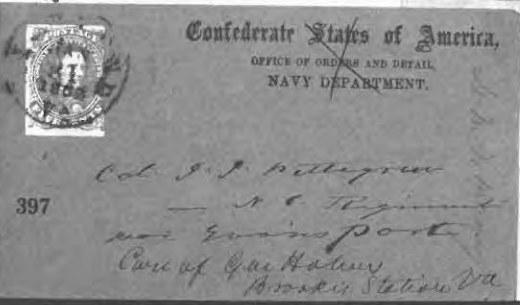 Confederate States of America,
OFFICE OF ORDERS AND DETAIL
NAVY DEPARTMENT.
POSTAGE
Col. J. J. Pettegrew
— N C Regiment
near Evansport
397
Care of Gen Holmes
Brooke's Station Va